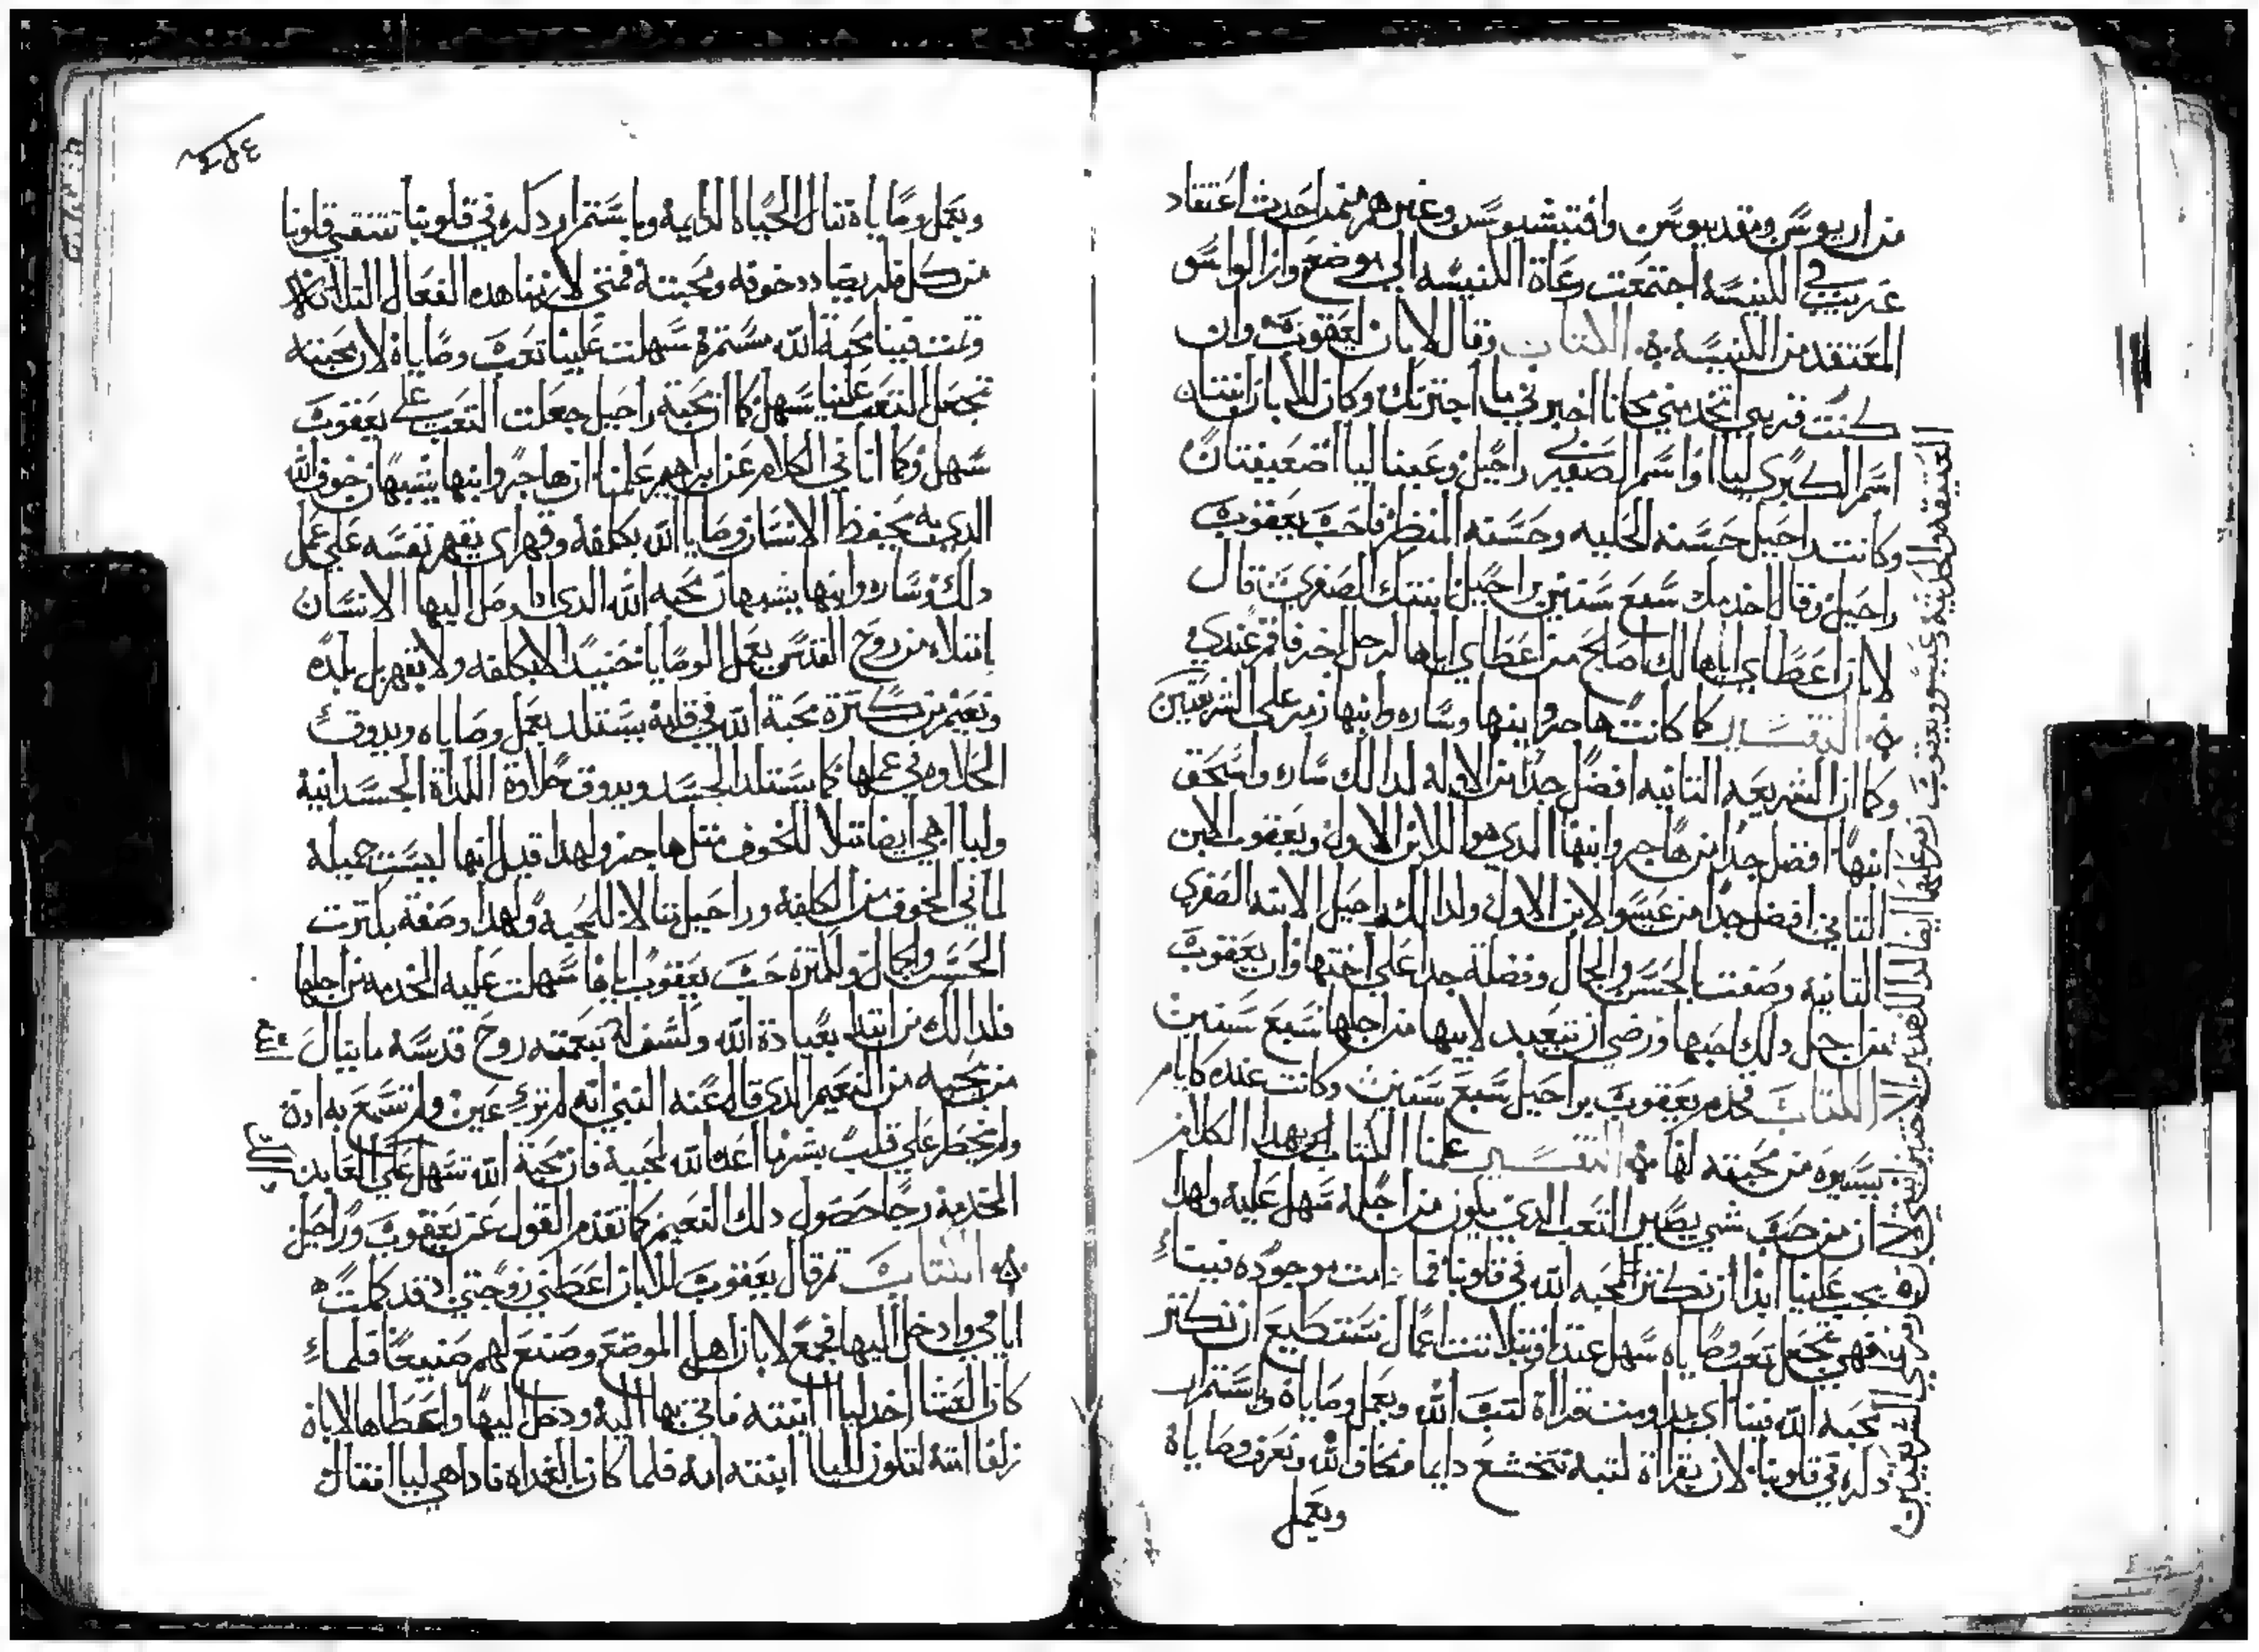 من اريوس ومقدنيوس وافتيشيوس وغيرهم ممن احدث اعتقاد
غريب في الكنيسة اجتمعت رعاة الكنيسه الي موضع وازالوا سو
المعتقد من الكنيسة الكتاب وقال لابان ليعقوب وان
كنت قريبي اتخدمني مجانا اخبرني ما اجرتك وكان للابان ابنتان
اسم الكبري ليا واسم الصغيره راحيل وعينا ليا ضعيفتان
وكانت راحيل حسنه الحليه وحسنه المنظر فاحب يعقوب
راحيل وقال اخدمك سبع سنين براحيل ابنتك الصغري قال
لابان اعطاي اياها لك اصلح من اعطاي اياها لرجل اخر فاقم عندي
التفسير كما كانت هاجر وابنها وساره وابنها رمز علي الشريعتين
وكما ان الشريعه التانيه افضل جدا من الاوله لدالك ساره واسحق
ابنها افضل جدا من هاجر وابنها الدي هو الابن الاول ويعقوب الابن
التاني افضل جدا من عيسو الابن الاول ولدالك راحيل الابنه الصغري
التانية وصفت بالحسن والجمال وفضلة جدا علي اختها وان يعقوب
من اجل دلك احبها ورضي ان يتعبد لابيها من اجلها سبع سنين
الكتاب فخدم يعقوب براحيل سبع سنين وكانت عنده كايام
يسيره من محبته لها التفسير علمنا الكتاب بهدا الكلام
ان من حب شي يصير التعب الدي يكون من اجله سهل عليه ولهدا
يجب علينا ابدا ان نكتر المحبه الله في قلوبنا فما دامت موجوده فينا
فهي تجعل تعب وصاياه سهل عندنا وبتلاتت اعمال نستطيع ان نكتر
محبه الله فينا اي بمداومت قراة كتب الله وبعمل وصاياه واستمرار
دكره في قلوبنا لان بقراة كتبه نتخشع دايما فنخاف الله ونعرف وصاياه
وبعمل
العتيقه والحديته وعيسو ويعقوب رمز عليهما ايضا لدالك هدين الاختين
وبعمل وصاياه ننال الحياه الدايمة وباستمرار دكره في قلوبنا تتنقي قلوبنا
من كل فكر يضادد خوفه ومحبته فمتي لازمنا هده الفعال التلاته
وتمت فينا محبة الله مستمرة سهلت علينا تعب وصاياه لان محبته
تجعل التعب علينا سهل كما ان محبة راحيل جعلت التعب علي يعقوب
سهل وكما اتا في الكلام عن ابرهيم علمنا ان هاجر وابنها يشبهان خوف الله
الدي به يحفظ الانسان وصايا الله بكلفه وقهر اي يقهر نفسه علي عمل
دلك وساره وابنها يشبهان محبه الله الدي ادا وصل اليها الانسان
امتلاء من روح القدس يعمل الوصايا حينيد لا بكلفه ولا بقهر بل بلده
ونعيم من كترة محبة الله في قلبه يستلد بعمل وصاياه ويدوق
الحلاوه في عملها كما يستلد الجسد ويدوق حلاوة اللداة الجسدانية
وليا هي ايضا متلا للخوف متل هاجر ولهدا قيل انها ليست جميله
لما في الخوف من الكلفة وراحيل متالا للمحبه ولهدا وصفة بكترت
الحسن والجمال ولكترة حب يعقوب اياها سهلت عليه الخدمه من اجلها
فلدالك من ابتدا بعبادة الله وكشف له بنعمته روح قدسه ما ينال
من محبيه من النعيم الدي قال عنه النبي انه لم تري عين ولم تسمع به ادن
ولم يخطر علي قلب بشر ما اعد الله لمحبيه فان محبة الله تسهل علي العابد
الخدمه رجا حصول دلك النعيم كما تقدم القول عن يعقوب وراحيل
الكتاب تم قال يعقوب للابان اعطني زوجتي اد قد كملت
ايامي وادخل اليها فجمع لابان اهل الموضع وصنع لهم صنيعا فلما
كان العشا اخد ليا ابنته فاتي بها اليه ودخل اليها واعطاها لابان
زلفا امته لتكون لليا ابنته امه فلما كان بالغداه فادا هي ليا فقال